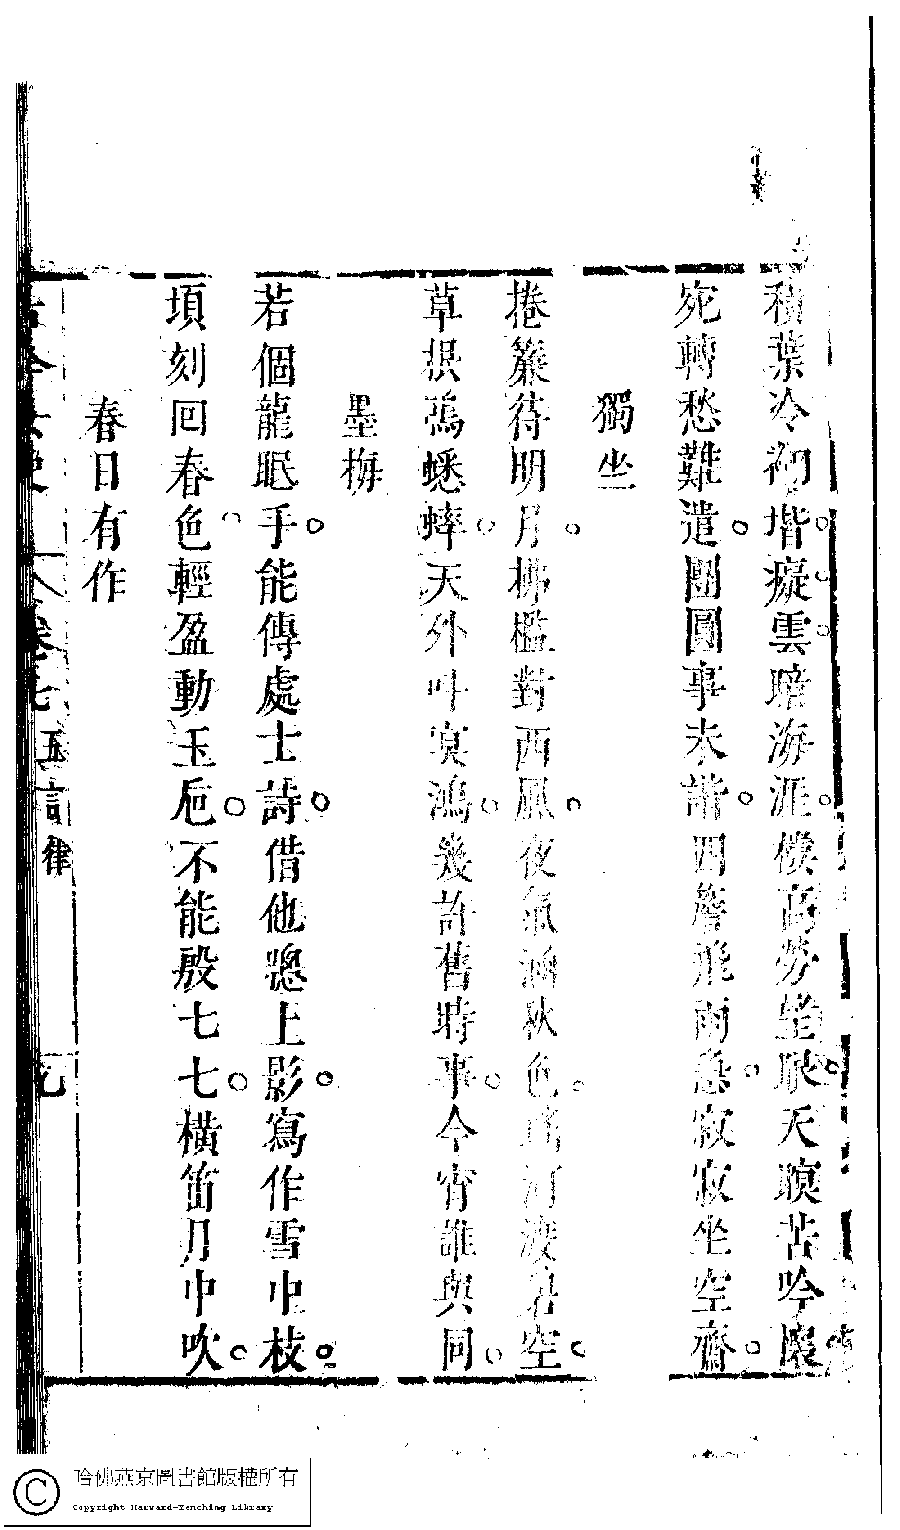 積葉冷初堦癡雲暗海涯倦高勞坐耿天暝苦吟懷
宛轉愁難遣團圓事未諧四簷飛雨急寂寂坐空齋
獨坐
捲簾待明月拂檻對西風夜氣涵秋色銀河浸碧空
草根鳴蟋蟀天外叫冥鴻幾許舊時事今宵誰與同
墨梅
若個龍眠手能傳處士詩借他窗上影寫作雪中枝
頃刻回春色輕盈動玉卮不能殷七七橫笛月中吹
春日有作
古今女史 卷七 五言律 九
哈佛燕京圖書館版權所有
Copyright Harvard-Yenching Library